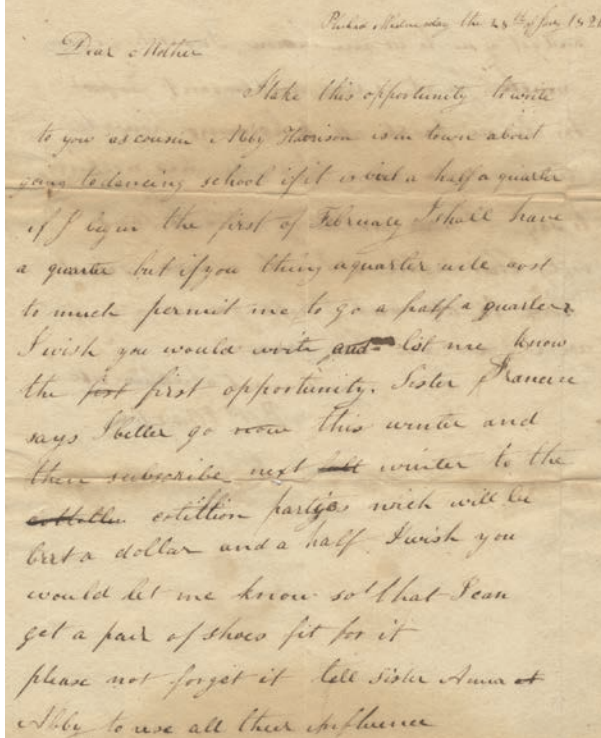 Wednesday the 28th of Jan 182
Dear Mother
I take this opportunity to write
to you as cousin Abby Harrison is in town about
going to dancing school if it is but a half a quarter
if I begin the first of February I shall have
a quarter but if you thing a quarter will cost
to much permit me to go a half a quarter
I wish you would write and let me know
the first first opportunity. Sister Francin
says I better go now this winter and
then subscribe next fall winter to the
cotillion partys wich will be
but a dollar and a half I wish you
would let me know so that I can
get a pair of shoes fit for it
please not forget it tell Sister Anna et
Abby to use all their influence